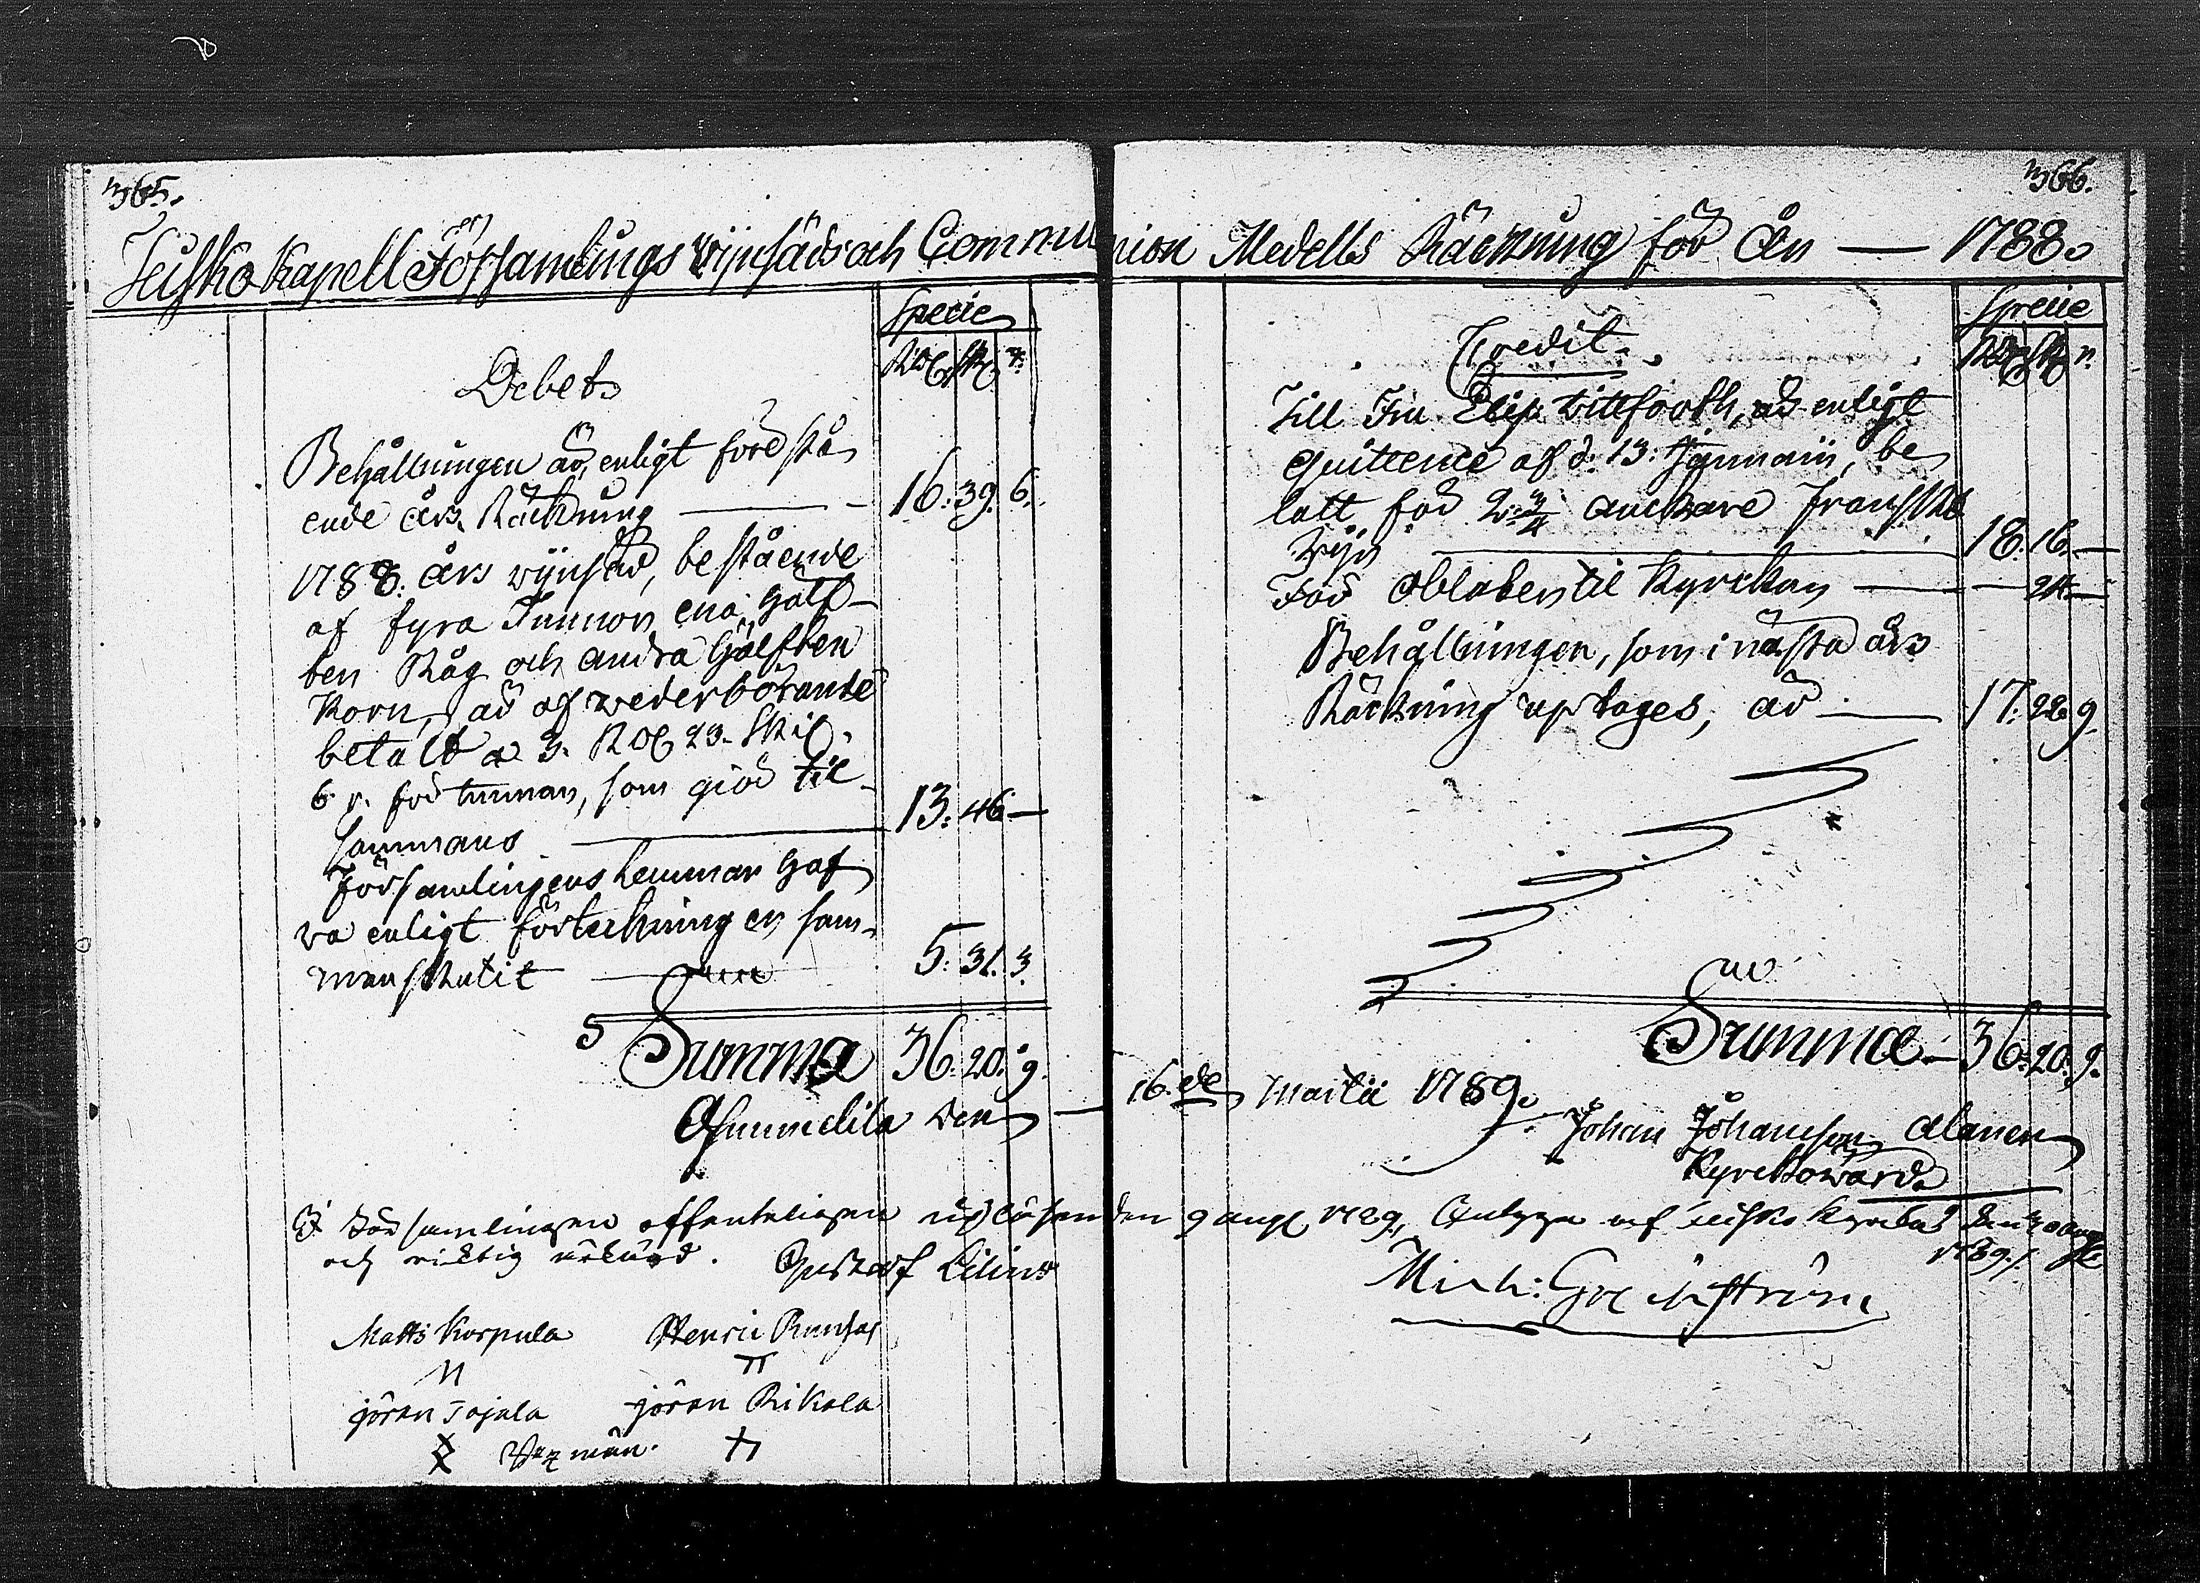 365.
366.
Teisko Kapell Församlings wijnsäds och Communion Medells Räckning för Åhr — 1788.
Specie
Rdr Sk r.
Debet
Behållningen är, enligt förestå-
ende års Räckning — 16: 39. 6.
1788: års wijnsäd, bestående
af fyra Tunnor, ena Hälf-
ten Råg och andra Hälften
Korn, är af wederbörande
betalt a 3. Rdr 23. Skil.
6 r. för tunnan, som giör til-
sammans — 13: 46 —
Församlingens Lemmar Gaf
wa enligt förteckning en sam-
manskutit — 5: 31. 3
Summa 36: 20: 9.
Specie
Rdr Sk r.
Credit
Till Fru Elis: Wittfooth, är enligt
Quittence af d: 13: Januarii, be
talt för 2 3/4 anckare Franskt
Wijn — 18. 16. —
För Oblater til Kyrckan — 24. —
Behållningen, som i nästa års
Räckning uptages, är — 17: 28. 9.
Summa — 36: 20: 9.
Afsummelita den — 16.de Martii 1789.
Johan Johansson Alanen
Kyrckowärd.
I Församlingen offenteligen upläsen den 9 aug 1789,
och richtig erkänd. Gustaf Lilius
af Teisko Kyrka den 30 aug
1789
Mich: Gre
Matts Korpula Henric
Jöran Tojala Jöran Rikala
män.